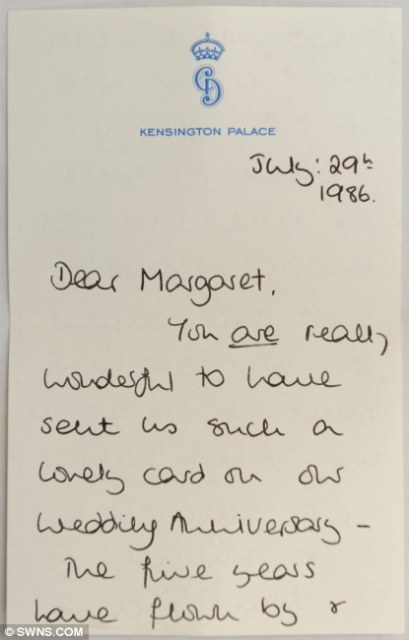 KENSINGTON PALACE
July: 29th
1986.
Dear Margaret,
You are really
wonderful to have
sent us such a
lovely card on our
Wedding Anniversary -
The five years
have flown by &
© SWNS.COM